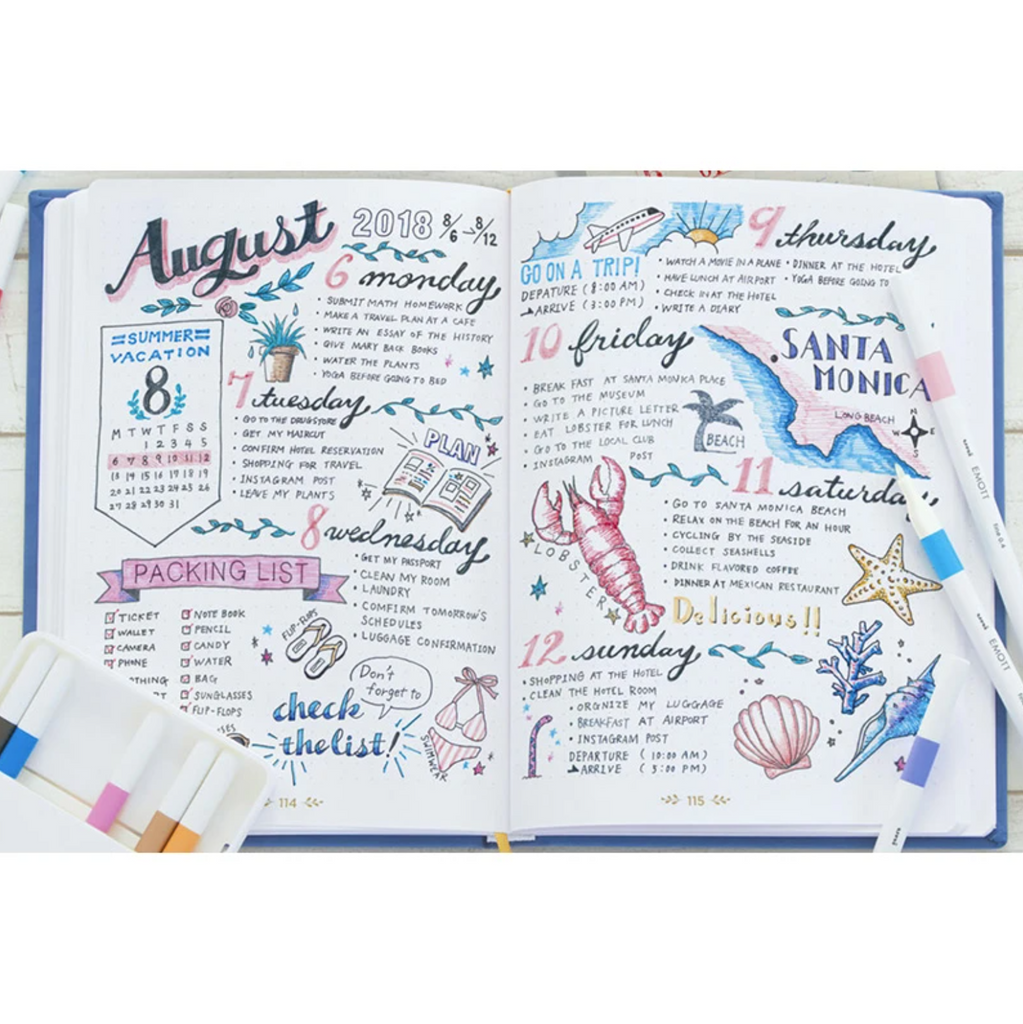 August
2018 8/6 → 8/12
SUMMER
VACATION
8
M T W T F S S
1 2 3 4 5
6 7 8 9 10 11 12
13 14 15 16 17 18 19
20 21 22 23 24 25 26
27 28 29 30 31
6 monday
• SUBMIT MATH HOMEWORK
• MAKE A TRAVEL PLAN AT A CAFE
• WRITE AN ESSAY OF THE HISTORY
• GIVE MARY BACK BOOKS
• WATER THE PLANTS
• YOGA BEFORE GOING TO BED
7 tuesday
• GO TO THE DRUGSTORE
• GET MY HAIRCUT
CONFIRM HOTEL RESERVATION
• SHOPPING FOR TRAVEL
• INSTAGRAM POST
• LEAVE MY PLANTS
PLAN
8 wednesday
• GET MY PASSPORT
• CLEAN MY ROOM
• LAUNDRY
• COMFIRM TOMORROW'S
SCHEDULES
• LUGGAGE CONFIRMATION
PACKING LIST
TICKET
WALLET
CAMERA
PHONE
NOTE BOOK
PENCIL
CANDY
WATER
BAG
SUNGLASSES
FLIP-FLOPS
FLIP-FLOPS
Don't
forget to
check
the list!
SWIMWEAR
114
GO ON A TRIP!
DEPATURE (8:00 AM)
ARRIVE (3:00 PM)
9 thursday
• WATCH A MOVIE IN A PLANE • DINNER AT THE HOTEL
• HAVE LUNCH AT AIRPORT • YOGA BEFORE GOING TO
• CHECK IN AT THE HOTEL
• WRITE A DIARY
10 friday
• BREAK FAST AT SANTA MONICA PLACE
• GO TO THE MUSEUM
• WRITE A PICTURE LETTER
• EAT LOBSTER FOR LUNCH
• GO TO THE LOCAL CLUB
• INSTAGRAM POST
BEACH
SANTA
MONICA
LONG BEACH
N
W E
S
11 saturday
• GO TO SANTA MONICA BEACH
• RELAX ON THE BEACH FOR AN HOUR
• CYCLING BY THE SEASIDE
• COLLECT SEASHELLS
• DRINK FLAVORED COFFEE
• DINNER AT MEXICAN RESTAURANT
LOBSTER
Delicious!!
12 sunday
• SHOPPING AT THE HOTEL
• CLEAN THE HOTEL ROOM
• ORGNIZE MY LUGGAGE
• BREAKFAST AT AIRPORT
• INSTAGRAM POST
DEPARTURE (10:00 AM)
ARRIVE (5:00 PM)
115
uni EMOTT fine 0.4
EMOTT